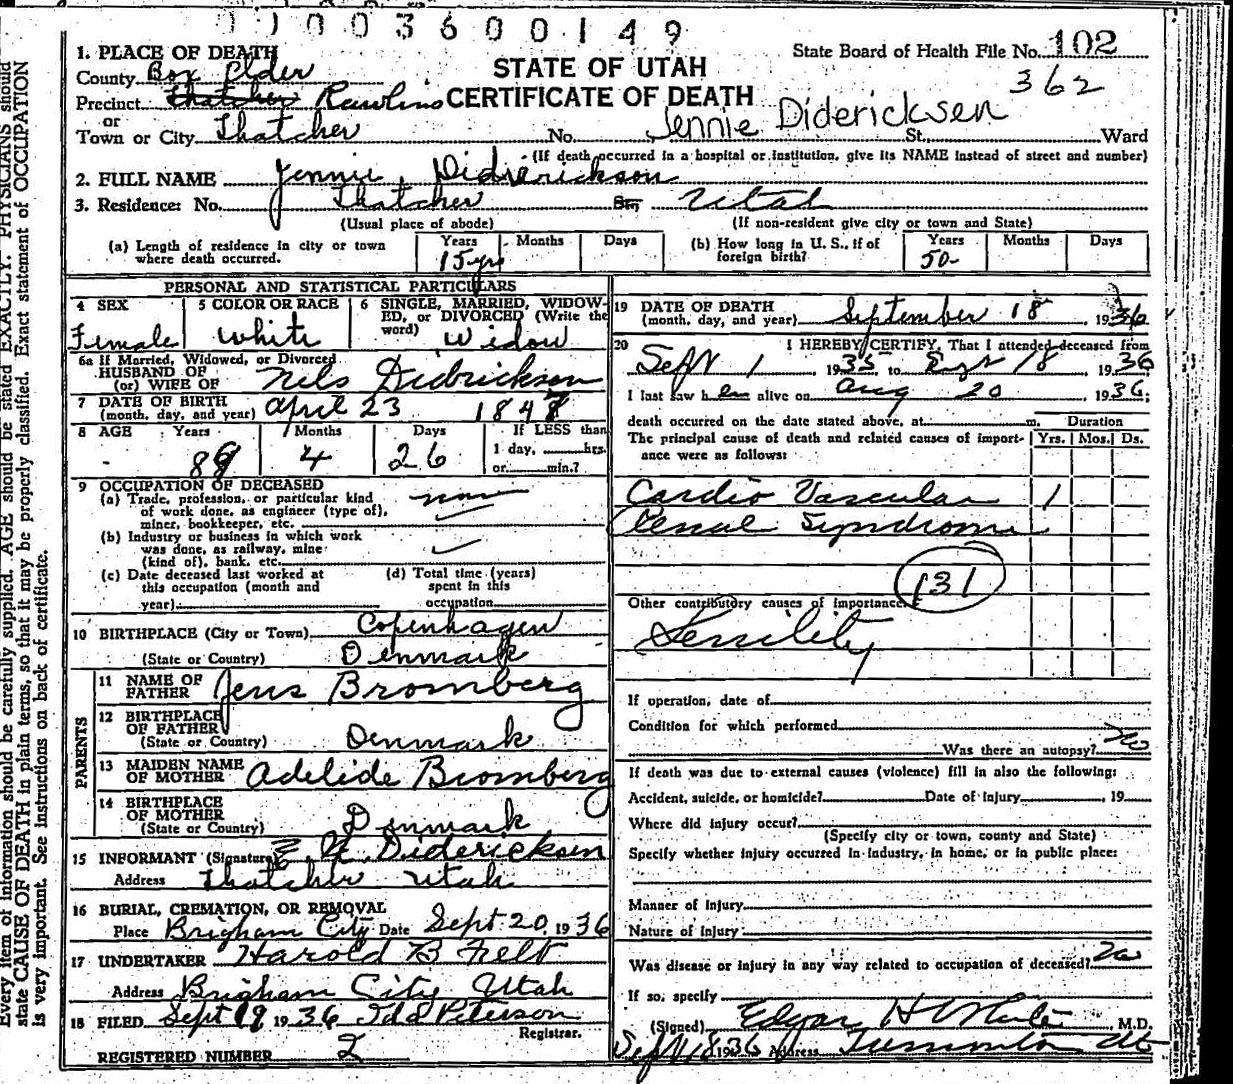 003600149
1. PLACE OF DEATH
State Board of Health File No. 102
County Box Elder
STATE OF UTAH
362
Precinct Thatcher Rawlins
CERTIFICATE OF DEATH
Jennie Didericksen
or
Town or City Thatcher No. St. Ward
(If death occurred in a hospital or institution, give its NAME instead of street and number)
2. FULL NAME Jennie Didrerickson
3. Residence: No. Thatcher St., Utah
(Usual place of abode) (If non-resident give city or town and State)
(a) Length of residence in city or town where death occurred. Years Months Days
15 yrs
(b) How long in U. S., if of foreign birth? Years Months Days
50
PERSONAL AND STATISTICAL PARTICULARS
4 SEX
Female
5 COLOR OR RACE
White
6 SINGLE, MARRIED, WIDOWED, or DIVORCED (Write the word)
Widow
6a If Married, Widowed, or Divorced
HUSBAND OF
(or) WIFE OF Nels Didrickson
7 DATE OF BIRTH
(month, day, and year) April 23 1848
8 AGE Years Months Days If LESS than
88 4 26 1 day, hrs.
or min.?
9 OCCUPATION OF DECEASED
(a) Trade, profession, or particular kind
of work done, as engineer (type of),
miner, bookkeeper, etc.
(b) Industry or business in which work
was done, as railway, mine
(kind of), bank, etc.
(c) Date deceased last worked at
this occupation (month and
year)
(d) Total time (years)
spent in this
occupation
10 BIRTHPLACE (City or Town) Copenhagen
(State or Country) Denmark
PARENTS
11 NAME OF
FATHER Jens Bromberg
12 BIRTHPLACE
OF FATHER
(State or Country) Denmark
13 MAIDEN NAME
OF MOTHER Adelide Bromberg
14 BIRTHPLACE
OF MOTHER
(State or Country) Denmark
15 INFORMANT (Signature) Didericksen
Address Thatcher Utah
16 BURIAL, CREMATION, OR REMOVAL
Place Brigham City Date Sept 20, 1936
17 UNDERTAKER Harold B Felt
Address Brigham City Utah
18 FILED Sept 19 1936 Ida Peterson
Registrar.
REGISTERED NUMBER 2
19 DATE OF DEATH
(month, day, and year) September 18, 1936
20 I HEREBY CERTIFY, That I attended deceased from
Sept 1, 1935 to Sept 18, 1936
I last saw her alive on Aug 20, 1936;
death occurred on the date stated above, at m.
Duration
The principal cause of death and related causes of importance were as follows: Yrs. Mos. Ds.
Cardio Vascular 1
Renal Syndrome
131
Other contributory causes of importance:
Senility
If operation, date of
Condition for which performed
Was there an autopsy? No
If death was due to external causes (violence) fill in also the following:
Accident, suicide, or homicide? Date of injury , 19
Where did injury occur?
(Specify city or town, county and State)
Specify whether injury occurred in industry, in home, or in public place:
Manner of injury
Nature of injury
Was disease or injury in any way related to occupation of deceased? No
If so, specify
(Signed) Edgar H White M.D.
Sept 18 1936 Address Tremonton Ut
Every item of information should be carefully supplied. AGE should be stated EXACTLY. PHYSICIANS should
state CAUSE OF DEATH in plain terms, so that it may be properly classified. Exact statement of OCCUPATION
is very important. See instructions on back of certificate.